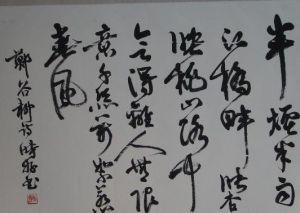 半煙半雨
江橋畔映杏
映桃山路中
会得離人無限
意千絲萬絮惹
春風
鄭谷柳詩